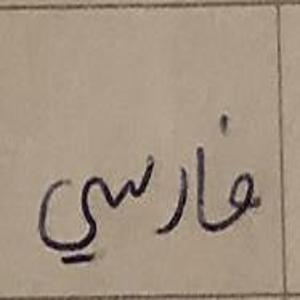 فارسي